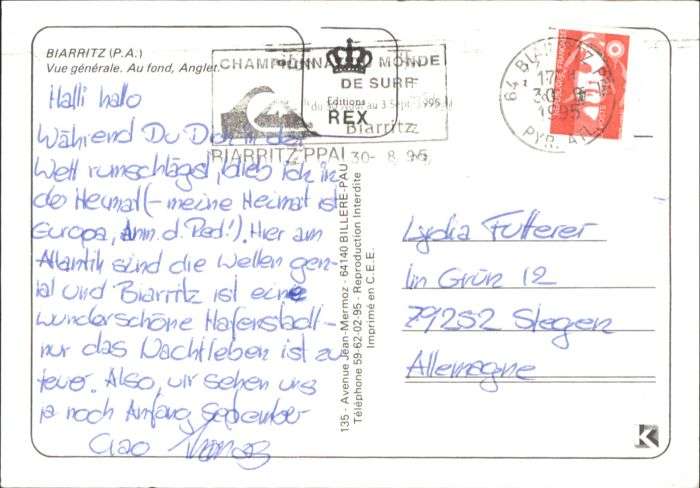 BIARRITZ (P.A.)
Vue générale. Au fond, Anglet.
CHAMPIONNAT MONDE
DE SURF
Editions
REX
au 3 Sept 1995
Biarritz
BIARRITZ PPAL 30-8 95
64 BIARRITZ PPAL
17H
30 8
1995
PYR. ATL
Halli hallo
Während Du Dich in der
Welt rumschlägst, blieb ich in
der Heimat (- meine Heimat ist
Europa, Anm. d. Red!). Hier am
Atlantik sind die Wellen gen-
ial und Biarritz ist eine
wunderschöne Hafenstadt -
nur das Nachtleben ist zu
teuer. Also, wir sehen uns
ja noch Anfang September
Ciao Thomas
135 - Avenue Jean-Mermoz - 64140 BILLERE-PAU
Téléphone 59-62-02-95 - Reproduction Interdite
Imprimé en C.E.E.
Lydia Futterer
Im Grün 12
79252 Stegen
Allemagne
K